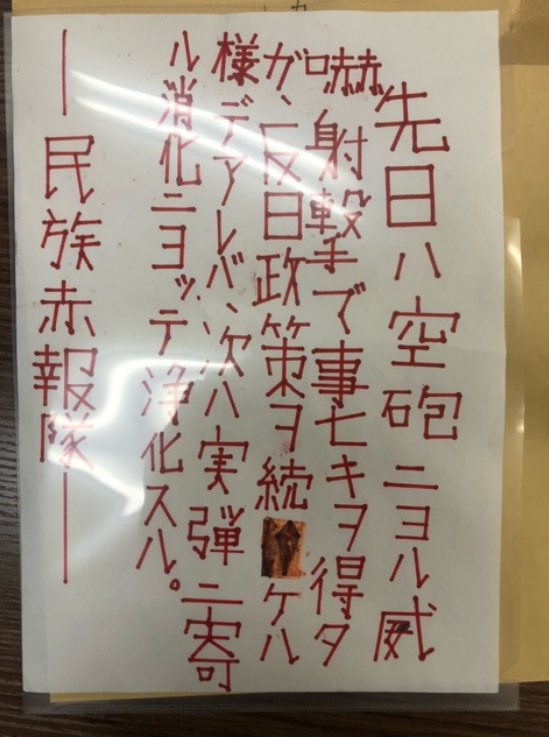 先日ハ空砲ニヨル威
嚇射撃デ事七キヲ得タ
ガ、反日政策ヲ続ケル
様デアレバ、次ハ実弾ニ寄
ル消化ニヨッテ浄化スル。
―民族赤報隊―